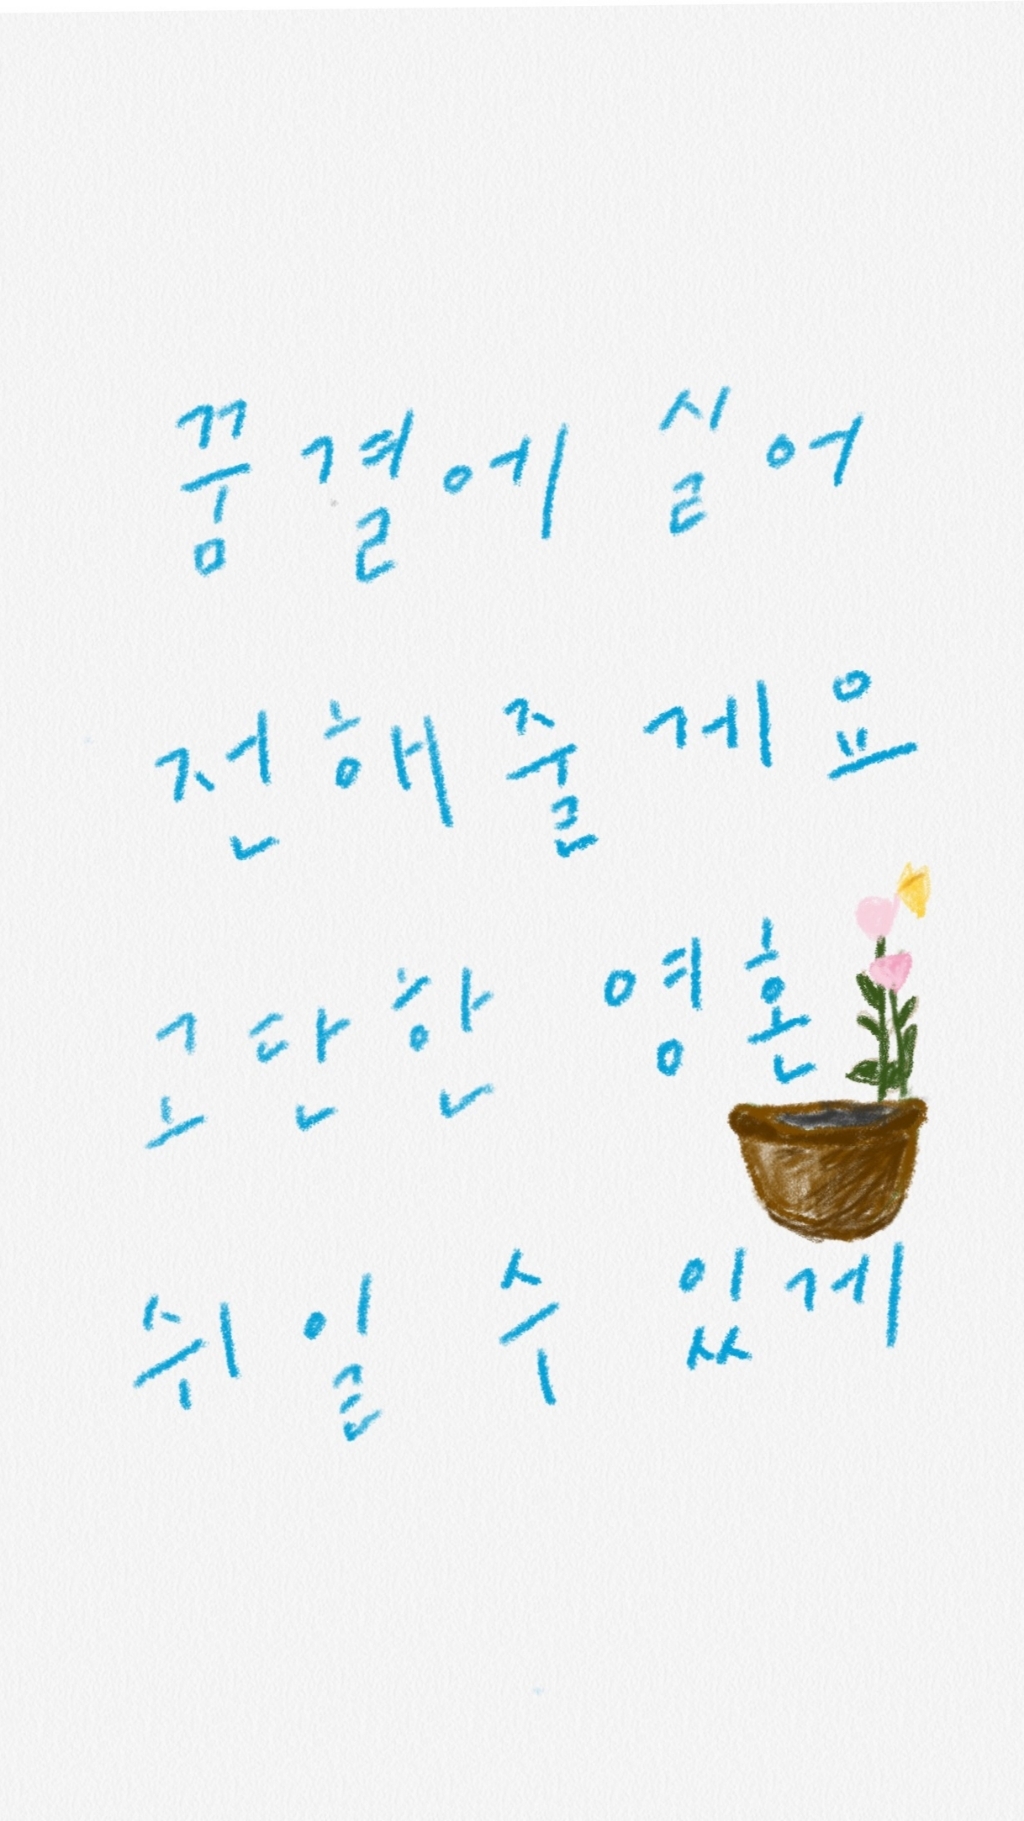 꿈결에 실어
전해줄게요
고단한 영혼
쉬일 수 있게